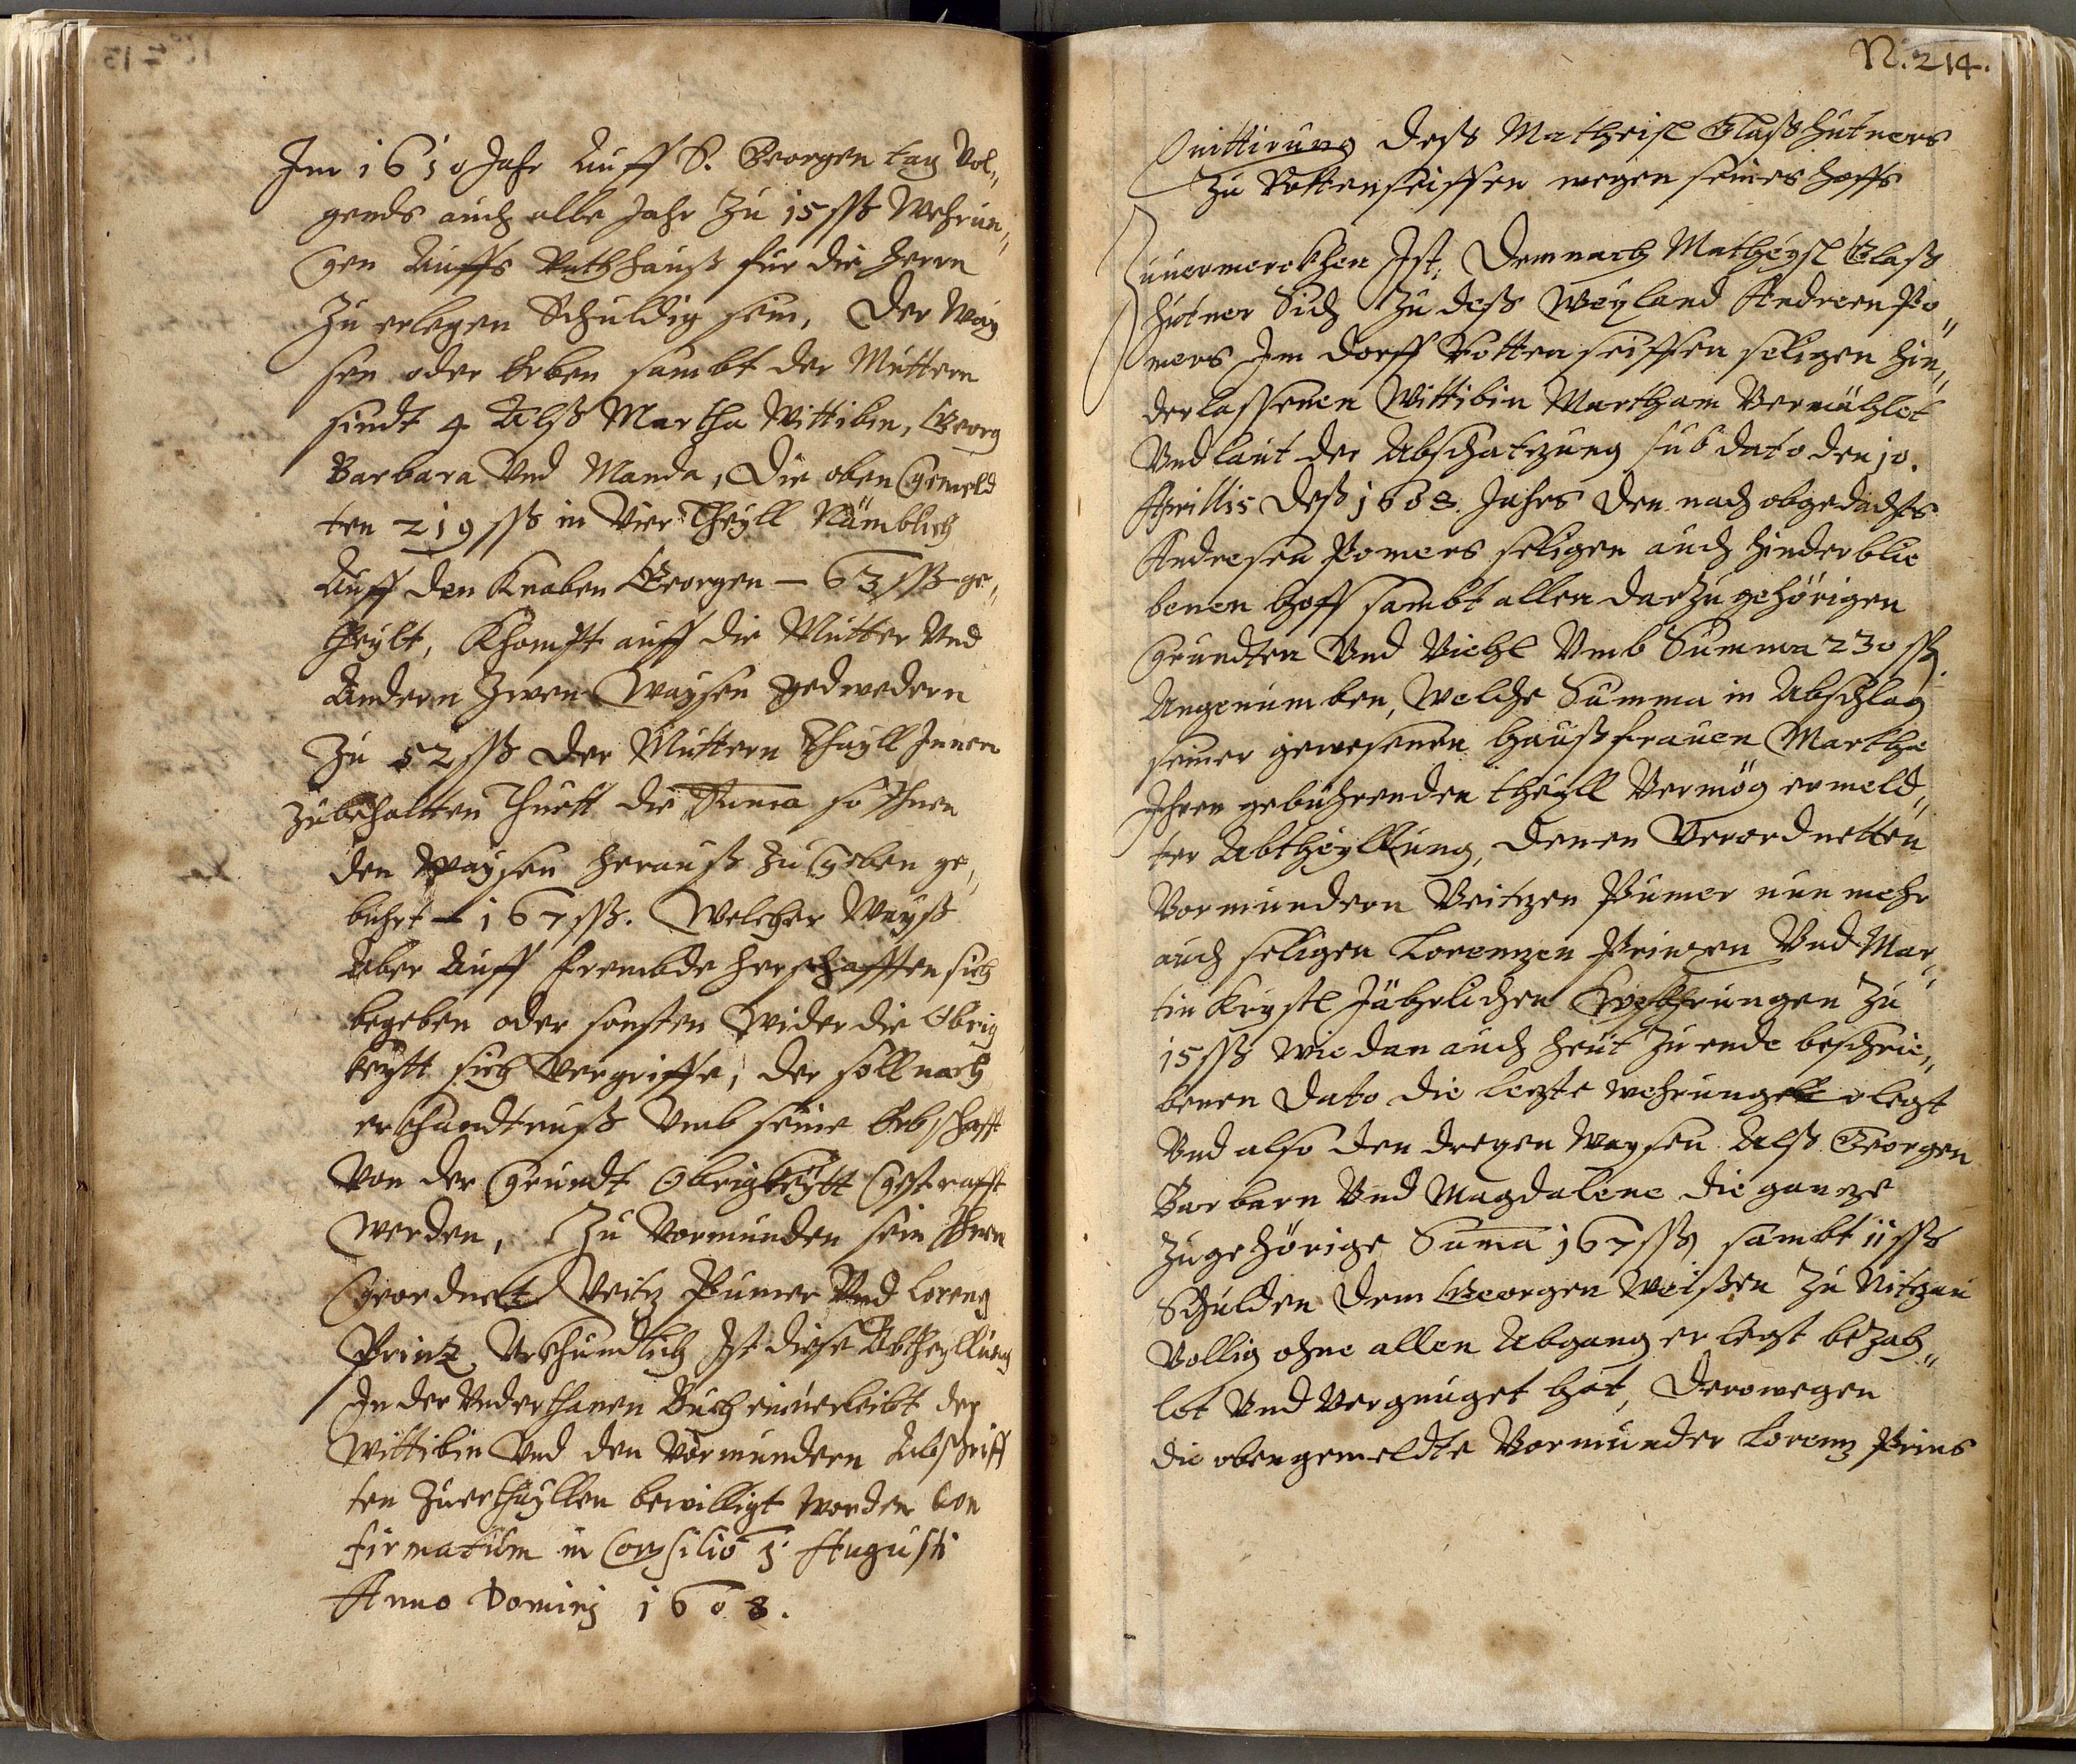 Im 1610 Jahr Auff S. Georgen tag Vol„
gends auch alle Jahr Zu 15 ßß Wehrun„
gen Auffs Rathhauß für die Herrn
Zu erlegen Schuldig sein, Der Way
sen oder Erben sambt der Muttern
sindt 4 Alß Martha Wittibin, Georg
Barbara Vnd Manda, Die oben Gemeld
ten 219 ßß in Vier Theyll Nämblich
Auff den Knaben Georgen – 63 ßß ge„
theylt, Khompt auff die Mutter Vnd
Andern Zwen Waysen Jedwedern
Zu 52 ßß Der Muttern Theyll Innen
Zubehaltten Thuett die Suma so Ihnen
den Waysen herauß Zu Geben ge„
buhrt – 167 ßß. Welcher Wayß
Aber Auff frembde herschafften sich
begeben oder sonsten Wider die Obrig
keytt sich Vergriffe, der soll nach
erkhandtnuß Vmb seine Erbschafft
Von der Grundt Obrigkeytt Gestrafft
Werden, Zu Vormunden sein Ihnen
Geordnet Veitz Pumer Vnd Lorentz
Printz Vrkhundlich Ist diese Abtheyllung
In der Vnderthanen Buch einuerleibt der
Wittibin Vnd den Vormundern Abschriff
ten Zuerthayllen bewilligt Worden Con
firmatum in Consilio 5 Augusti
Anno Dominj 1608.
N. 214.
Quittirung deß Matheisl Glaßhütners
Zu Rottenseiffen wegen seines hoffs
Zuuermerckhen Ist, Demnach Matheysl Glaß
hütner Sich Zu deß Weyland Andreen Po„
mers Im dorff Rottenseiffen seligen hin„
derlassenen Wittibin Martham Vermählet
Vnd laut der Abschatzung sub dato den 10.
Aprillis deß 1608. Jahrs den nach obgedachts
Andresen Pomers seligen auch hinderblie
benen hoff sambt allen darzu gehörigen
Grundten Vnd Viehl Vmb Summa 230 ßß
Angenumben, Welche Summa in Abschlag
seiner gewesenen haußfrauen Martha
Ihren gebührenden theyll Vermög ermeld„
ter Abtheyllung, denen Verordnetten
Vormundern Veitzen Pumer nun mehr
auch seligen Lorentzen Printzen Vnd Mar„
tin Krystl Jährlichen Wehrungen Zu
15 ßß Wie dan auch heut Zu ende beschrie„
benen Dato die letzte wehrung erlegt
Vnd also den dreyen Waysen Alß Georgen
Barbarn Vnd Magdalene die gantze
Zugehörige Suma 167 ßß sambt 11 ßß
Schulden dem Georgen Weißen Zu Nitzau
Vollig ohne allen Abgang erlegt bezah„
let Vnd Vergnuget hat, Derowegen
die obengemeldte Vormunder Lorentz Prins